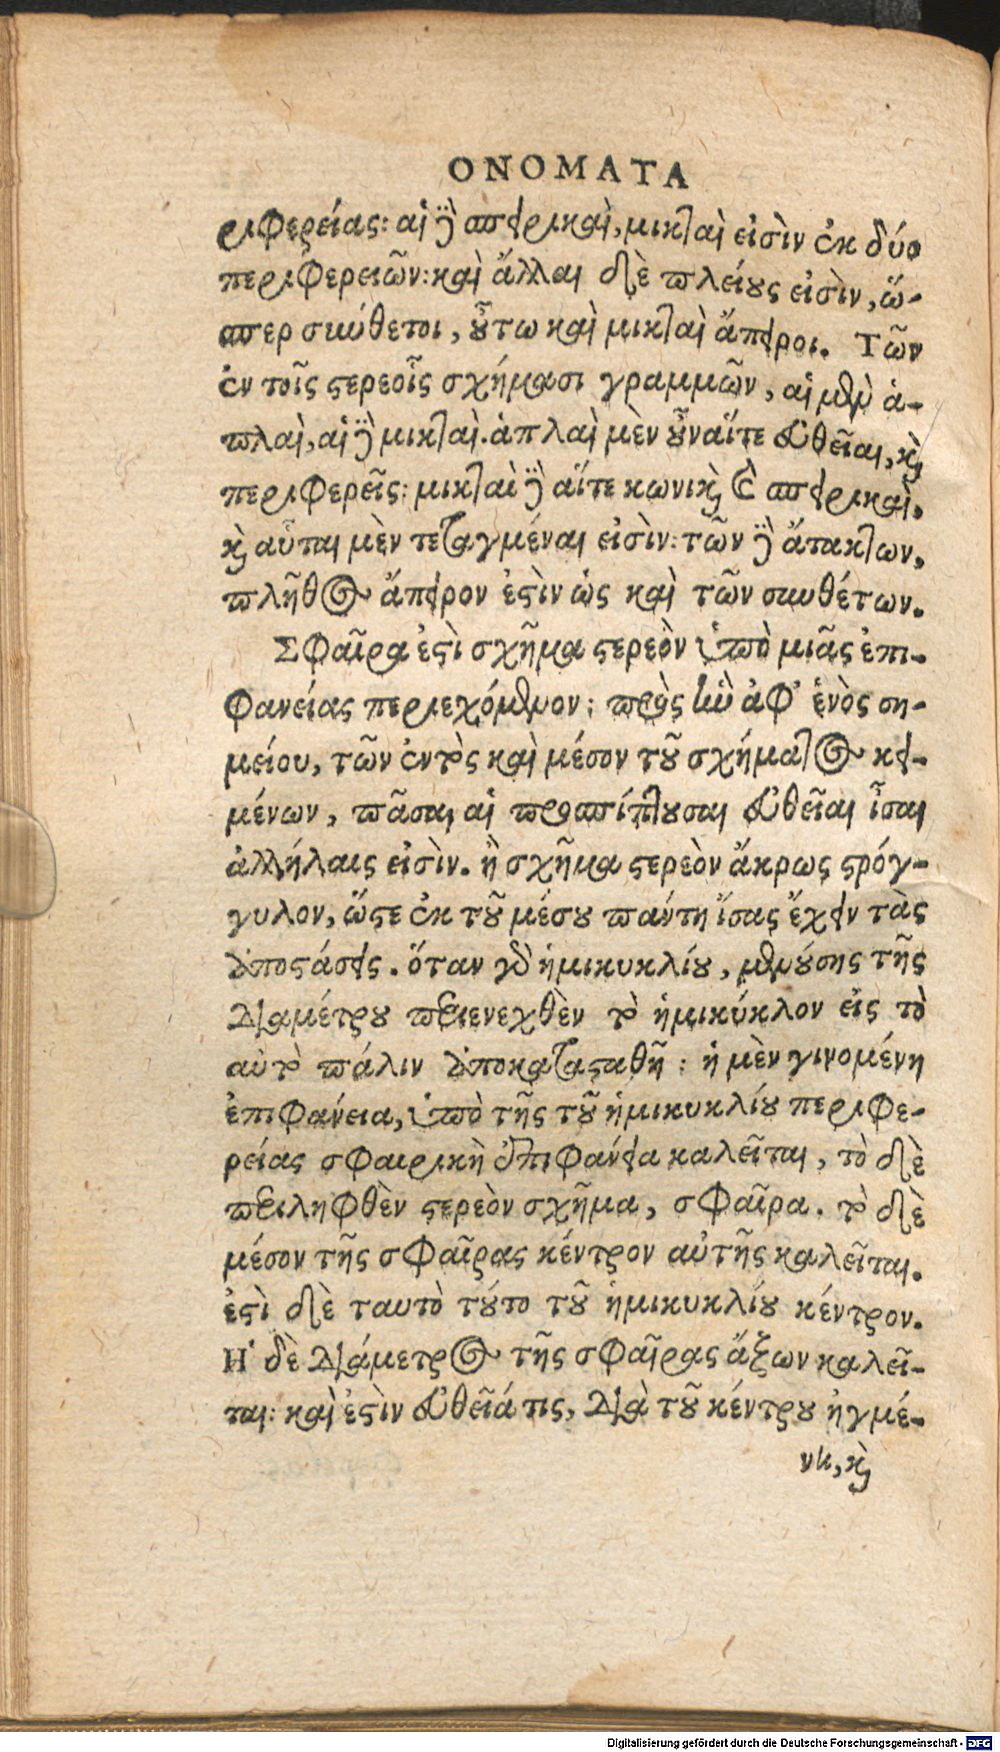 ΟΝΟΜΑΤΑ
ριφερείας: αἱ δὲ σπειρικαὶ, μικταὶ εἰσὶν ἐκ δύο
περιφερειῶν: καὶ ἄλλαι δὲ πλείους εἰσὶν, ὥ-
σπερ σύνθετοι, οὕτω καὶ μικταὶ ἄπειροι. Τῶν
ἐν τοῖς στερεοῖς σχήμασι γραμμῶν, αἱ μὲν ἁ-
πλαὶ, αἱ δὲ μικταὶ. ἁπλαὶ μὲν οὖν αἵτε εὐθεῖαι, καὶ
περιφερεῖς: μικταὶ δὲ αἵτε κωνικαὶ καὶ σπειρικαὶ.
καὶ αὗται μὲν τεταγμέναι εἰσὶν: τῶν δὲ ἄτακτων,
πλῆθος ἄπειρον ἐστὶν ὡς καὶ τῶν συνθέτων.
Σφαῖρα ἐστὶ σχῆμα στερεὸν ὑπὸ μιᾶς ἐπι-
φανείας περιεχόμενον: πρὸς ἣν ἀφ' ἑνὸς ση-
μείου, τῶν ἐντὸς καὶ μέσον τοῦ σχήματος κει-
μένων, πᾶσαι αἱ προσπίπτουσαι εὐθεῖαι ἶσαι
ἀλλήλαις εἰσὶν. ἢ σχῆμα στερεὸν ἄκρως στρόγ-
γυλον, ὥστε ἐκ τοῦ μέσου πάντη ἴσας ἔχειν τὰς
ἀποστάσεις. ὅταν γὰρ ἡμικυκλίου, μενούσης τῆς
διαμέτρου περιενεχθὲν τὸ ἡμικύκλον εἰς τὸ
αὐτὸ πάλιν ἀποκατασταθῇ: ἡ μὲν γινομένη
ἐπιφάνεια, ὑπὸ τῆς τοῦ ἡμικυκλίου περιφε-
ρείας σφαιρικὴ ἐπιφάνεια καλεῖται, τὸ δὲ
περιληφθὲν στερεὸν σχῆμα, σφαῖρα. τὸ δὲ
μέσον τῆς σφαῖρας κέντρον αὐτῆς καλεῖται.
ἐστὶ δὲ ταυτὸ τούτο τοῦ ἡμικυκλίου κέντρον.
Ἡ δὲ διάμετρος τῆς σφαῖρας ἄξων καλεῖ-
ται: καὶ ἐστὶν εὐθεῖά τις, διὰ τοῦ κέντρου ἠγμέ-
νη, καὶ
Digitalisierung gefördert durch die Deutsche Forschungsgemeinschaft - DFG